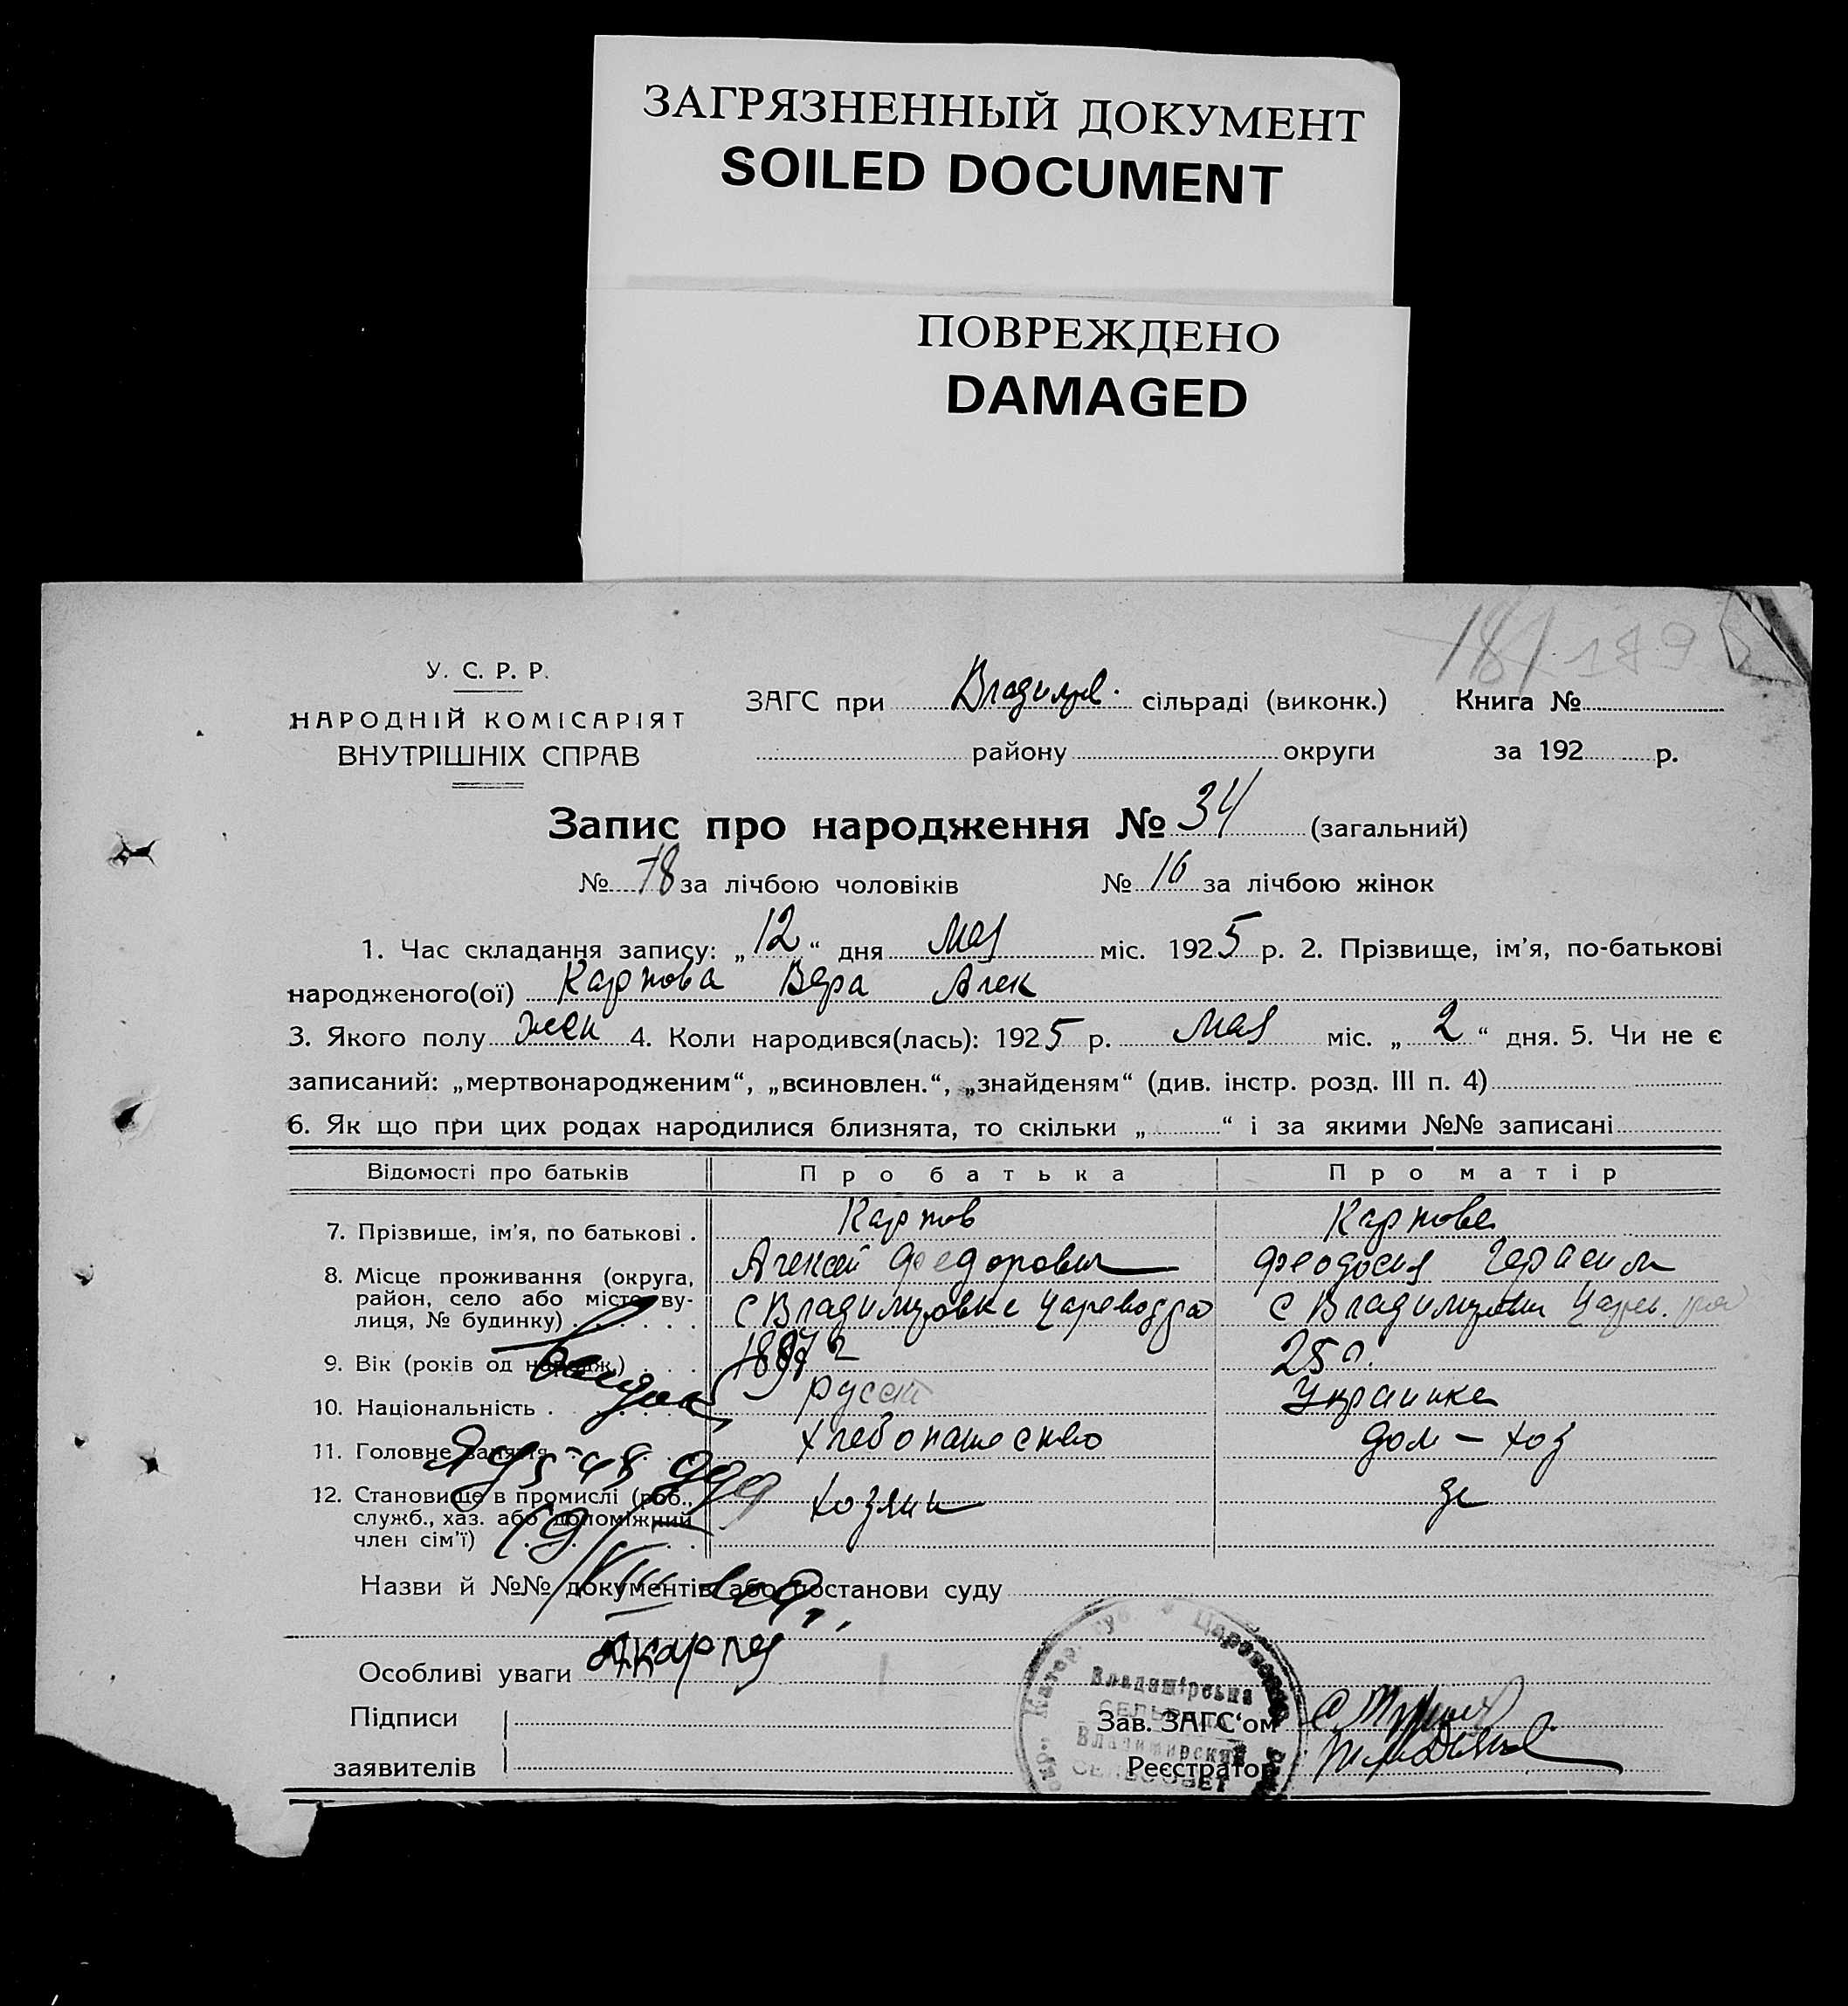 ЗАГРЯЗНЕННЫЙ ДОКУМЕНТ
SOILED DOCUMENT
ПОВРЕЖДЕНО
DAMAGED
181 179
У. С. Р. Р.
НАРОДНІЙ КОМІСАРІЯТ
ВНУТРІШНІХ СПРАВ
ЗАГС при Владимр. сільраді (виконк.) Книга №
району округи за 192 р.
Запис про народження № 34 (загальний)
№ 18 за лічбою чоловіків № 16 за лічбою жінок
1. Час складання запису: „12“ дня мая міс. 1925 р. 2. Прізвище, ім’я, по-батькові
народженого(ої) Карпова Вера Алек
3. Якого полу жен 4. Коли народився(лась): 1925 р. мая міс. „2“ дня. 5. Чи не є
записаний: „мертвонародженим“, „всиновлен.“, „знайденям“ (див. інстр. розд. III п. 4)
6. Як що при цих родах народилися близнята, то скільки „ “ і за якими №№ записані
Відомості про батьків Про батька Про матір
7. Прізвище, ім’я, по батькові . Карпов Карпова
Алексей Федорович Феодосия Герасим
8. Місце проживання (округа, район, село або місто, вулиця, № будинку) с Владимировке Царевод ра с Владимировки Царев. ра
9. Вік (років од народж.) 25 л.
10. Національність . русский Украинка
11. Головне заняття хлебопашество дом – хоз
12. Становище в промислі (роб., служб., хаз. або допоміжний член сім’ї) хозяин
Назви й №№ документів або постанови суду
Особливі уваги
Підписи
заявителів
Зав. ЗАГС‘ом
Реєстратор
Владимірська
СЕЛЬРАДА
Владимирский
СЕЛЬСОВЕТ